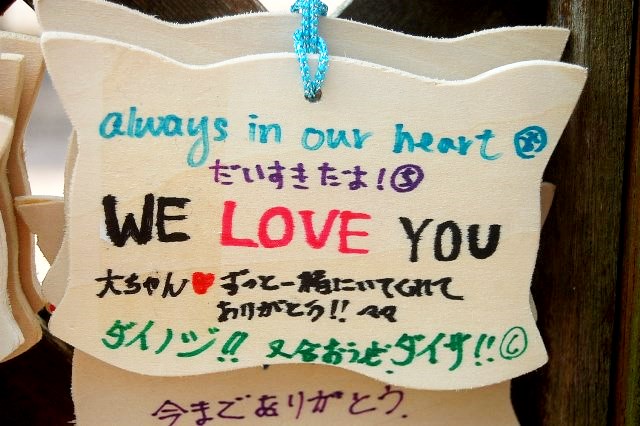 always in our heart
だいすきたよ!Ⓢ
WE LOVE YOU
大ちゃん♥ずっと一緒にいてくれて
ありがとう!!
ダイノジ!! 又会おうぜ、ダイサ!!Ⓒ
今までありがとう.